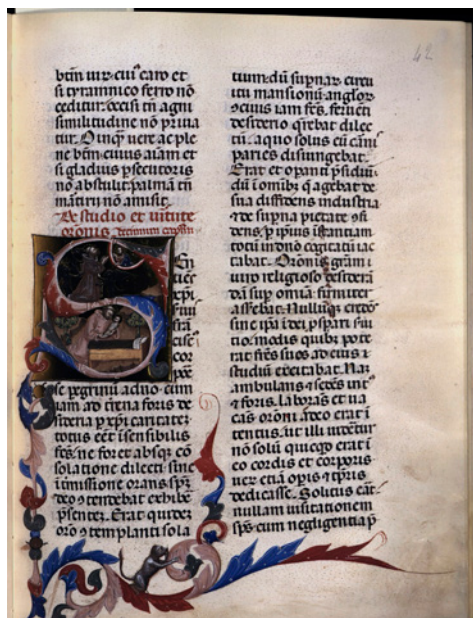 42
btm uir. cui' caro et
si tyrannico ferro nō
ceditur. occisi tn̄ agni
similitudine nō priua
tur. O inqͥ uere ac ple
ne btm cuius aīam et
si gladius p̄secutoris
nō abstulit. palmā tn̄
martirij nō amisit.
De studio et uirtute
orōnis decimum capłm
Sen
tiēs
xp̄i
seruus
frā
cisc'
cor
se pegrinū a dn̄o. cum
iam ad terrena foris de
sideria p xp̄i caritatem
totus eēt īsensibilis
fc̄s. ne foret absqͥ cō
solatione dilecti. sine
ītmissione orans. sp̄m
deo ɔtendebat exhibē
p̄sentez. Erat quidez
orō ɔtemplanti sola
tium. dū supnar circu
itu mansionū anglor
ɔciuis iam fc̄s. feruēti
desiderio q̄rebat dilec
tū. a quo solus eū cāni
paries disiungebat.
Erat et opanti p̄sidiū
dū ī omībz q̄ agebat de
sua diffidens industria
⁊ de supna pietate ɔfi
dens. p ipius īstantiam
totū in dn̄o cogitatū iac
tabat. Orōnis grām ī
uiro religioso desiderā
dā sup omīa firmiter
asserebat. Nullūqͥ credēs
sine ipa ī dei p̄spari ser
uitio. modis quibz pote
rat frēs suos ad eius ⁊
studiū excitabat. Nā
ambulans ⁊ sedēs int'
⁊ foris. laborās et ua
cās orōni adeo erat ī
tentus. ut illi uideretur
nō solū quicqͥd erat ī
eo cordis et corporis
uerū etiā opis ⁊ tp̄ris
dedicasse. Solitus erat
nullam uisitationem
sp̄s cum negligentia p̄